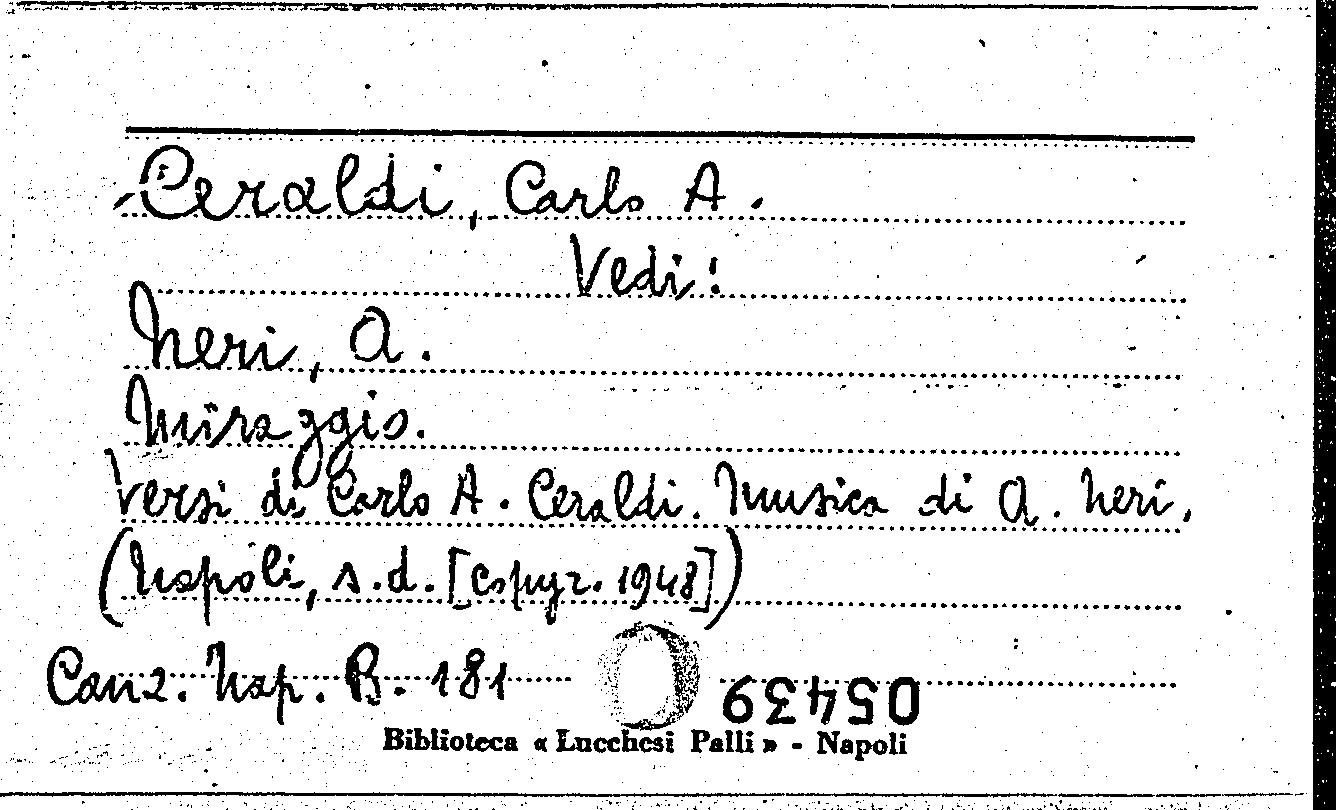 Ceraldi, Carlo A.
Vedi:
Neri, A.
Miraggio.
Versi di Carlo A. Ceraldi. Musica di A. Neri.
(Napoli, s.d. [Copyr. 1948])
Canz. Nap. B. 181
05439
Biblioteca « Lucchesi Palli » - Napoli